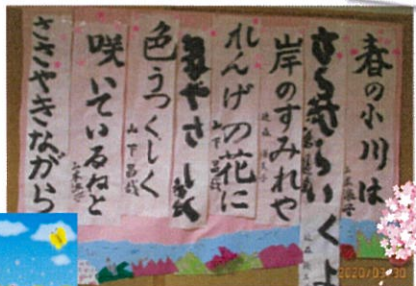 春の小川は
さらさらいくよ
岸のすみれや
れんげの花に
すがたやさしく
色うつくしく
山下昌哉
咲いているねと
ささやきながら
2020/03/30